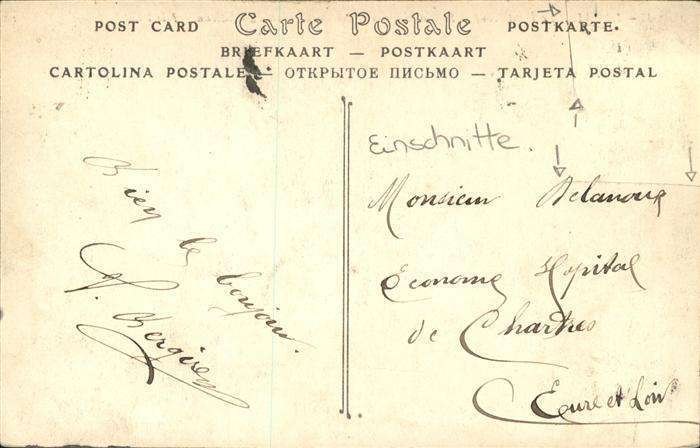 POST CARD Carte Postale POSTKARTE.
BRIEFKAART — POSTKAART
CARTOLINA POSTALE — ОТКРЫТОЕ ПИСЬМО — TARJETA POSTAL
Bien le bonjour.
Einschnitte.
Monsieur Delanoue
Econome Hopital
de Chartres
Eure et Loir